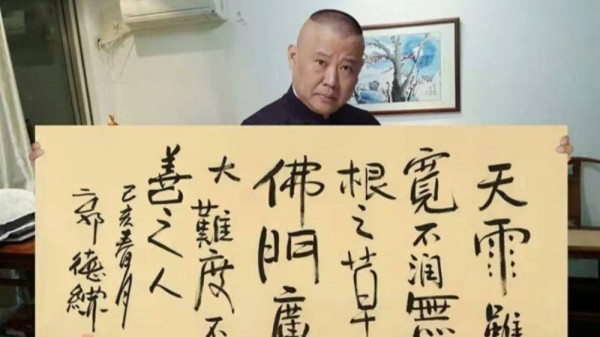 天雨雖
寬不潤無
根之草
佛門廣
大難度不
善之人
己亥春月
郭德綱